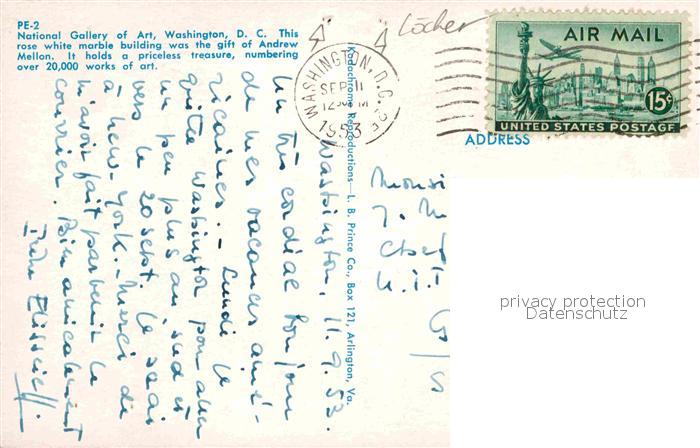 PE-2
National Gallery of Art, Washington, D. C. This
rose white marble building was the gift of Andrew
Mellon. It holds a priceless treasure, numbering
over 20,000 works of art.
Löcher
WASHINGTON, D.C.
SEP 11
12 30 PM
1953
AIR MAIL
15¢
UNITED STATES POSTAGE
ADDRESS
Kodachrome Reproductions—L. B. Prince Co., Box 121, Arlington, Va.
Washington, 11.9.53.
Un très cordial bonjour
de mes vacances amé-
ricaines. - Lundi je
quitte Washington pour aller
un peu plus au sud et
vers le 20 sept. je serai
à New-York. - Merci de
m'avoir fait parvenir le
courrier. Bien amicalement
Monsi
J. M
Chef
U.I.T
G
S
privacy protection
Datenschutz